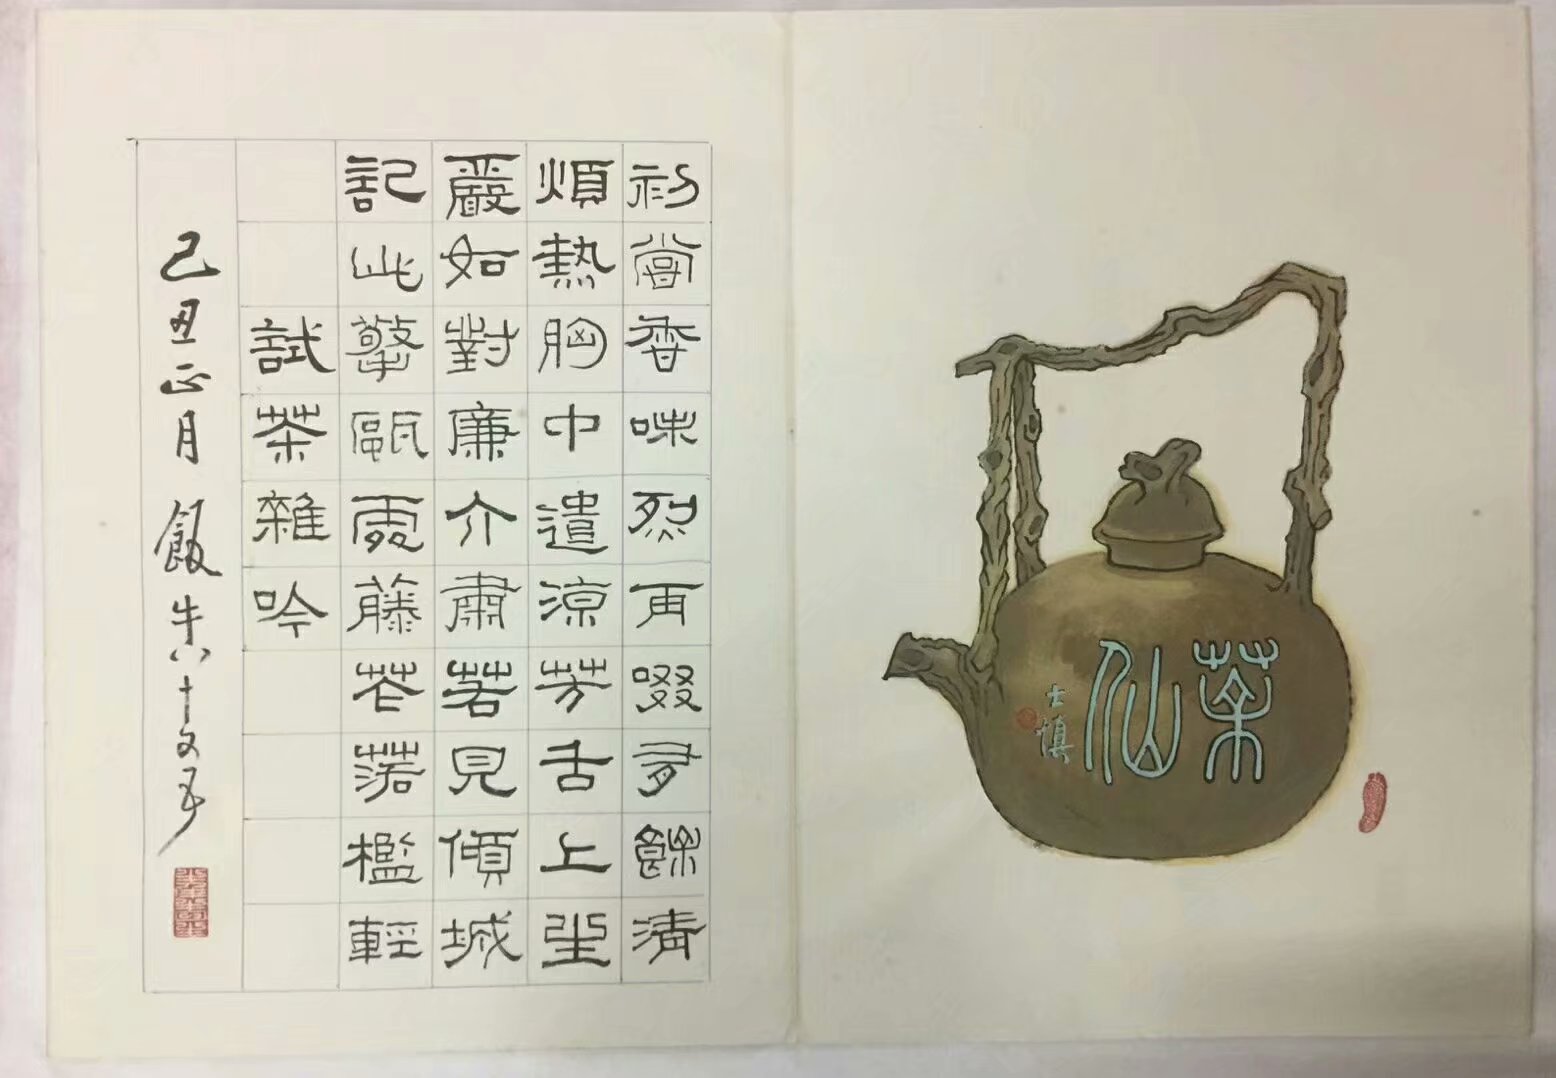 茶仙
士慎
初嘗香味烈再啜有餘清
煩熱胸中遣涼芳舌上坐
嚴如對廉介肅若見傾城
記此擎甌處藤花落檻輕
試茶雜吟
己丑正月飯牛八十又五